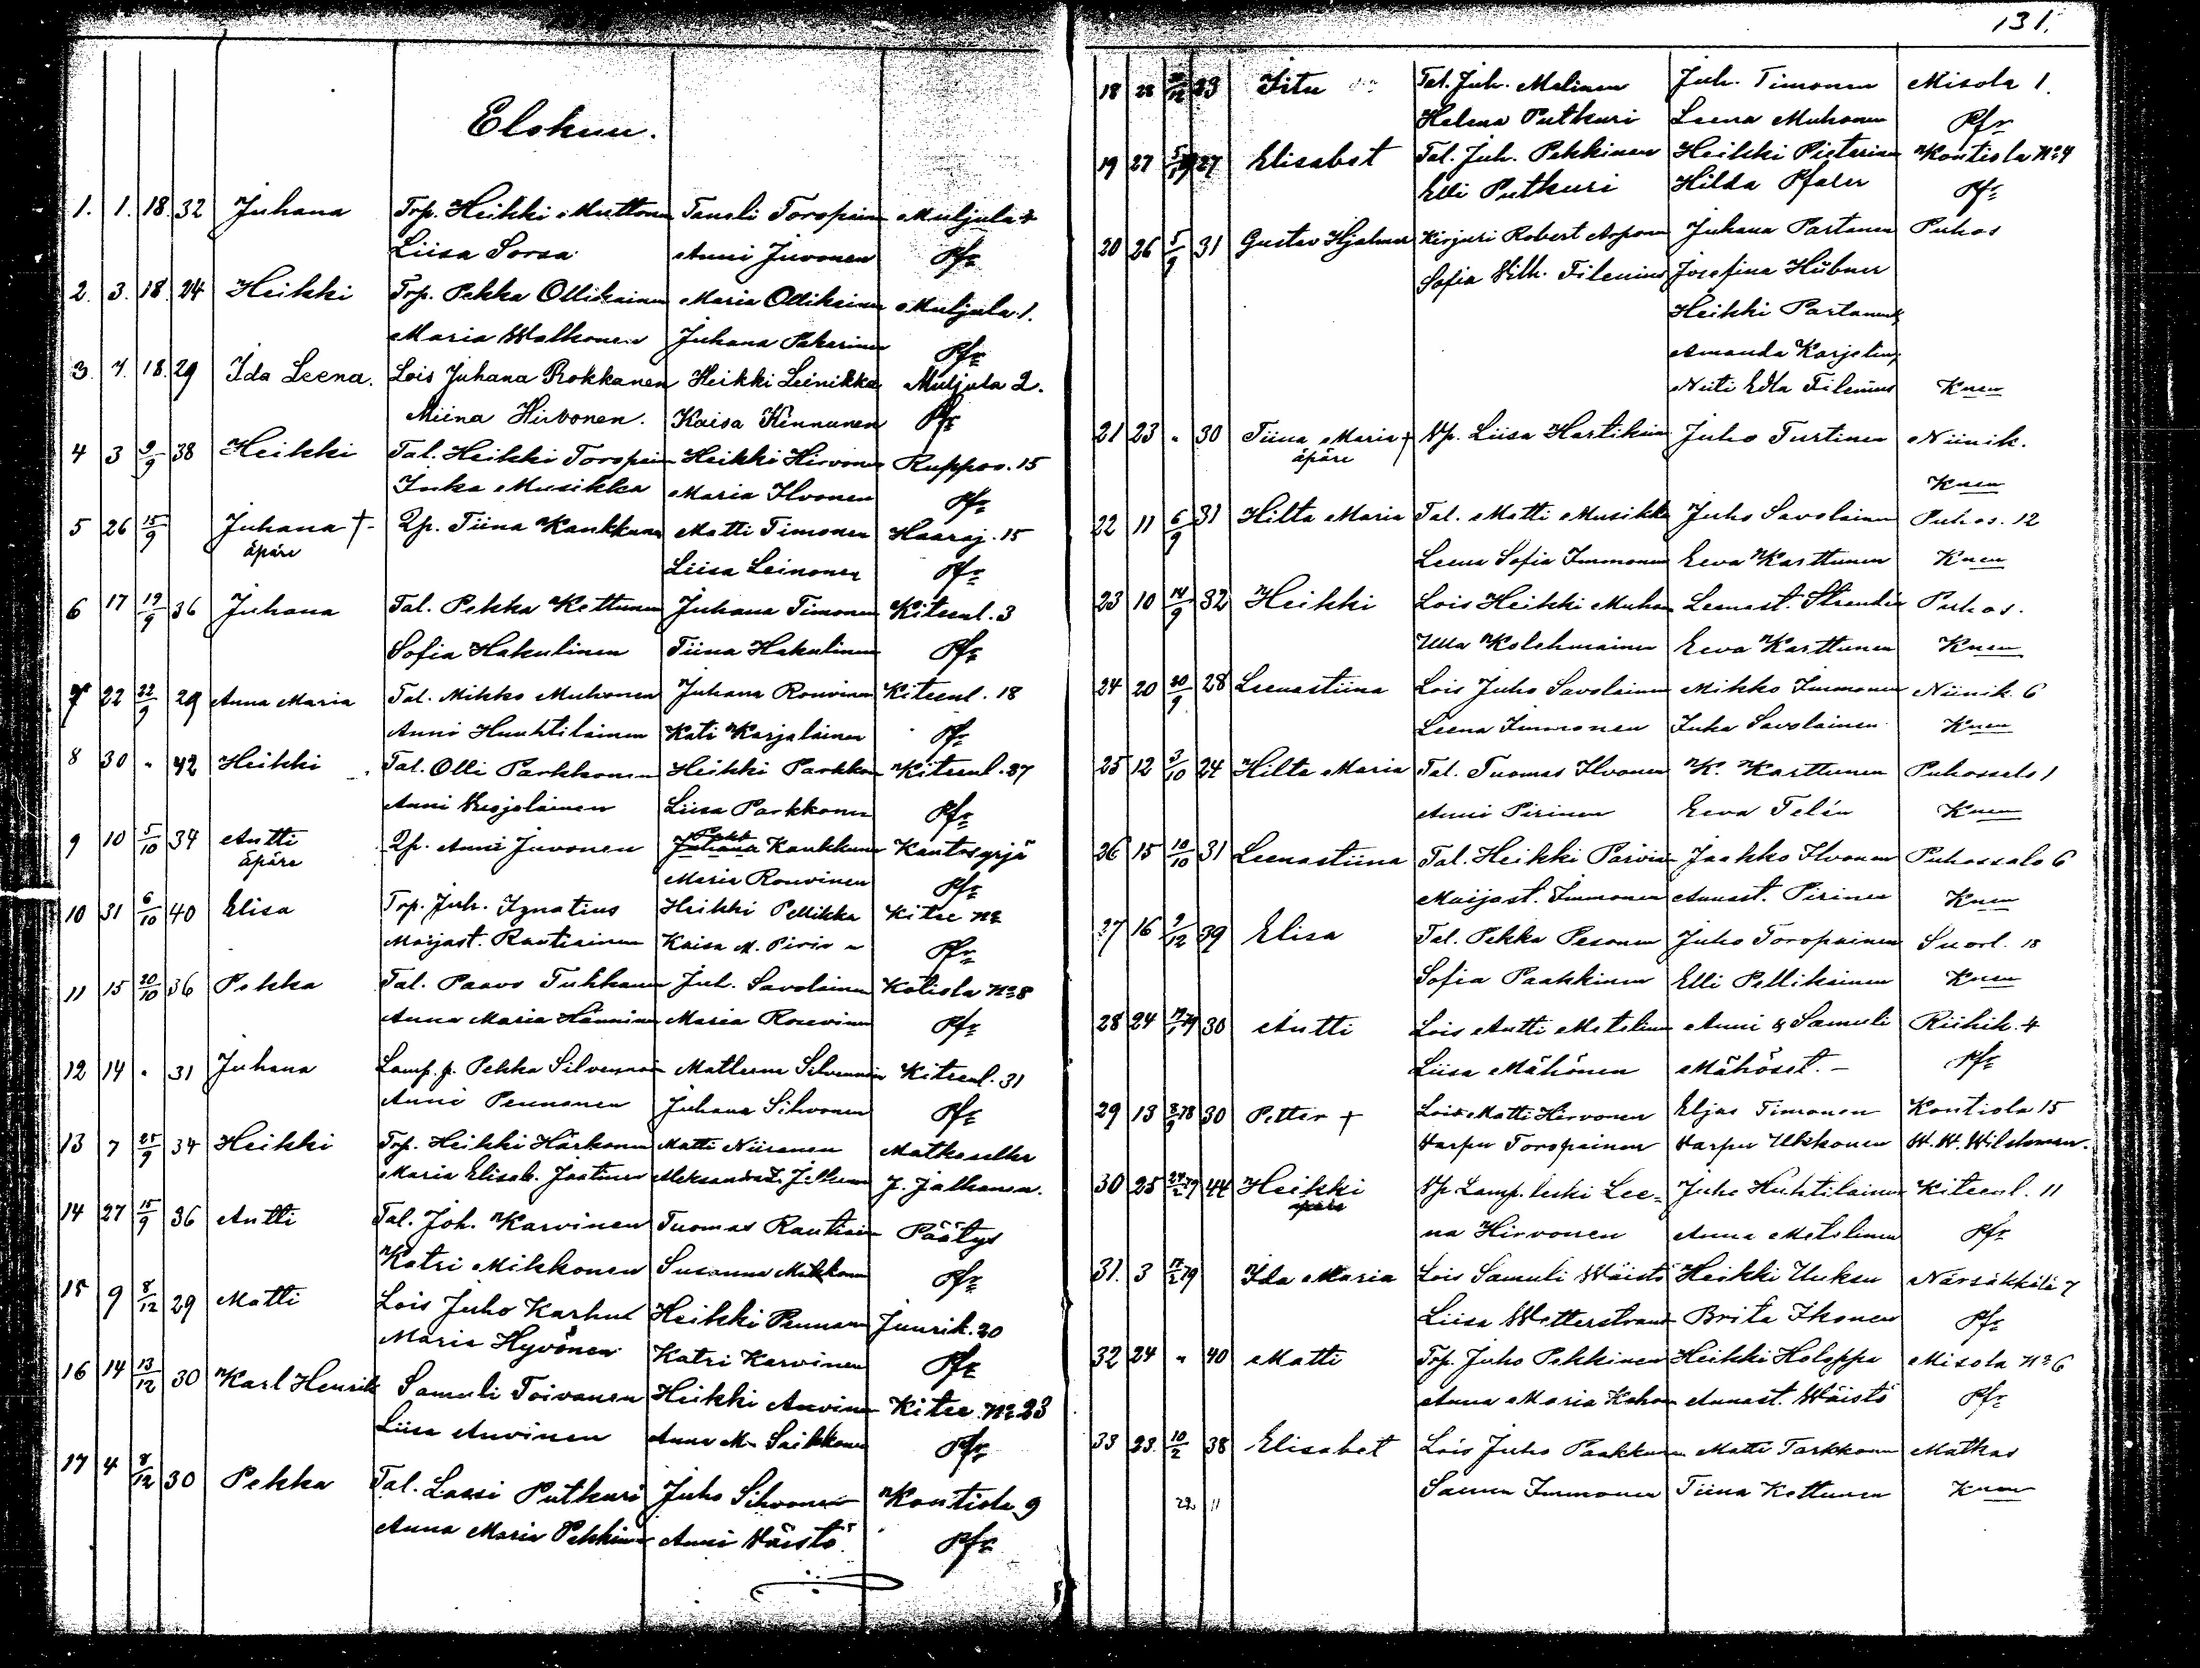 131.
Elokuu.
1. 1. 18. 32 Juhana Trp. Heikki Muttonen Taneli Toropain Muljula 4
Liisa Sorsa Anni Juvonen Pfr
2. 3. 18. 24 Heikki Trp. Pekka Ollikainen Maria Ollikainen Muljula 1.
Maria Walkonen Juhana Pakarinen Pfr
3. 7. 18. 29 Ida Leena. Lois Juhana Rokkanen Heikki Leinikka Muljula 2.
Miina Hirvonen. Kaisa Kinnunen Pfr
4 3 9/9 38 Heikki Tal. Heikki Toropain Heikki Hirvonen Ruppov. 15
Inka Musikka Maria Ilvonen Pfr
5 26 15/9 Juhana † Lp. Tiina Kaukkunen Matti Timonen Haaraj. 15
äpäre
Liisa Leinonen Pfr
6 17 19/9 36 Juhana Tal. Pekka Kettunen Juhana Timonen Kiteenl. 3
Sofia Hakulinen Tiina Hakulinen Pfr
7 22 22/9 29 Anna Maria Tal. Mikko Muhonen Juhana Rouvinen Kiteenl. 18
Anni Huuhtilainen Kati Karjalainen Pfr
8 30 " 42 Heikki Tal. Olli Parkkonen Heikki Parkkon Kiteenl. 37
Anni Liisa Parkkonen Pfr
9 10 5/10 34 Antti Lp. Anni Juvonen Juhana Kaukkunen Kantosyrjä
äpäre Pekk
Maria Rouvinen Pfr
10 31 6/10 40 Elisa Trp. Juh. Ignatius Heikki Pellikka Kitee No
Maijast. Rautiainen Kaisa M. Pirin n Pfr
11 15 20/10 36 Pekka Tal. Paavo Tuhkanen Juh. Savolainen Kotiola No 8
Anna Maria Hänninen Maria Rouvinen Pfr
12 14 " 31 Juhana Lamp. p. Pekka Silvennoin Matleena Silvennoin Kiteenl. 31
Anni Pennonen Juhana Sihvonen Pfr
13 7 25/9 34 Heikki Trp. Heikki Härkonen Matti Niiranen Matkaselkä
Maria Elisab. Jaatinen J. Jalkanen.
14 27 15/9 36 Antti Tal. Joh. Karvinen Tuomas Rautiain Päätys
Katri Mikkonen Susanna Mikkonen Pfr
15 9 8/12 29 Matti Lois Juho Karhu Heikki Pennanen Juurik. 20
Maria Hyvönen Katri Karvinen Pfr
16 14 13/12 30 Karl Henrik Samuli Toivanen Heikki Anvinen Kitee No 23
Liisa Anvinen Anna M. Saikkonen Pfr
17 4 8/12 30 Pekka Tal. Lassi Putkuri Juho Sihvonen Kontiola 9
Anna Maria Pekkinen Anni Väistö Pfr
18 28 /12 23 Iitu Tal. Juh. Malinen Juh. Timonen Misola 1.
Helena Putkuri Leena Muhonen Pfr
19 27 5/ 27 Elisabet Tal. Juh. Pekkinen Heikki Pietarinen Kontiola No 4
Elli Putkuri Hilda Pfaler Pfr
20 26 5/9 31 Gustav Hjalmar Kirjuri Robert Juhana Partanen Puhos
Sofia Vilh. Filenius Josefina Hübner
Heikki Partanen
Amanda Karjalin
Neiti Edla Filenius Knen
21 23 " 30 Tiina Maria † Np. Liisa Hartikain Juho Turtinen Niinik.
äpäre
Knen
22 11 6/9 31 Hilta Maria Tal. Matti Musikka Juho Savolainen Puhos. 12
Leena Sofia Immonen Eeva Karttunen Knen
23 10 14/9 32 Heikki Lois Heikki Muhon Leenast. Puhos.
Ulla Kolehmainen Eeva Karttunen Knen
24 20 20/9 28 Leenastiina Lois Juho Savolainen Mikko Immonen Niinik. 6
Leena Immonen Inka Savolainen Knen
25 12 3/10 24 Hilta Maria Tal. Tuomas Ilvonen K. Karttunen Puhossalo 1
Anni Pirinen Eeva Telén Knen
26 15 10/10 31 Leenastiina Tal. Heikki Parvia Jaakko Ilvonen Puhossalo 6
Maijast. Immonen Annast. Pirinen Knen
27 16 9/12 39 Elisa Tal. Pekka Pesonen Juho Toropainen Suorl. 18
Sofia Paakkinen Elli Pellikainen Knen
28 24 79 30 Antti Lois Antti Motslin Anni & Samuli Riihik. 4
Liisa Mähönen Mähöset. Pfr
29 13 78 30 Petter † Lois Matti Hirvonen Eljas Timonen Kontiola 15
Varpu Toropainen Varpu Ukkonen W. W. Wildeman.
30 25 79 44 Heikki Np. Lamp. leski Lee= Juho Huhtilainen Kiteenl. 11
äpäre
na Hirvonen Anna Motslinen Pfr
31. 3 79 Ida Maria Lois Samuli Wäistö Heikki Uuksu Närsäkkälä 7
Liisa Wetterstrand Brita Ikonen Pfr
32 24 " 40 Matti Trp. Juho Pekkinen Heikki Holoppa Misola No 6
Anna Maria Kohon Annast. Wäistö Pfr
33 23. 10/2 38 Elisabet Lois Juho Paakkunen Matti Tarkkonen Matkas
Sanna Immonen Tiina Kettunen Knen
22 11